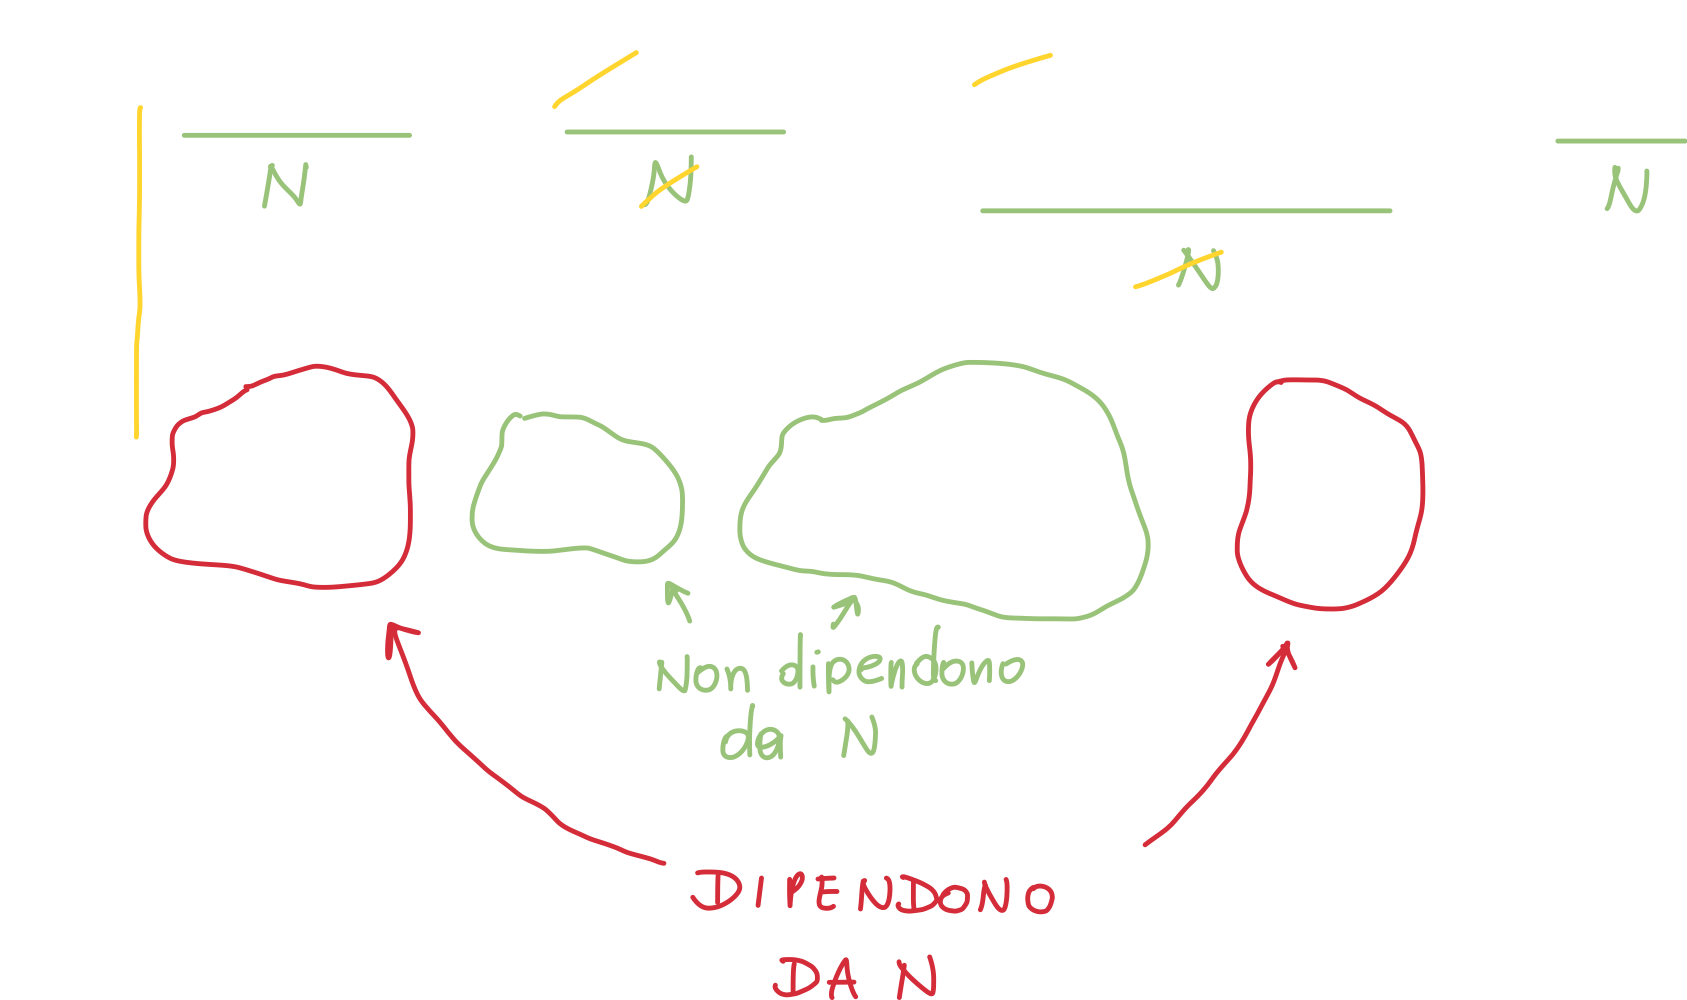 N N N
N
Non dipendono
da N
DIPENDONO
DA N